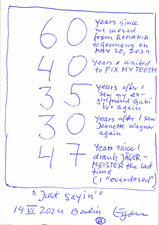 60 years since
we moved
from ROMANIA
to Germany on
MAY 20, 2024
40 years I waited
to FIX MY TEETH
35 years after I
saw my ex-
girlfriend Gabi
W. again
30 years after I saw
Jeanette Wagner
again
47 Years since I
drank JÄGER-
MEISTER the last
time
(I "overdosed")
"Just Sayin'"
14 VI 2024 Berlin